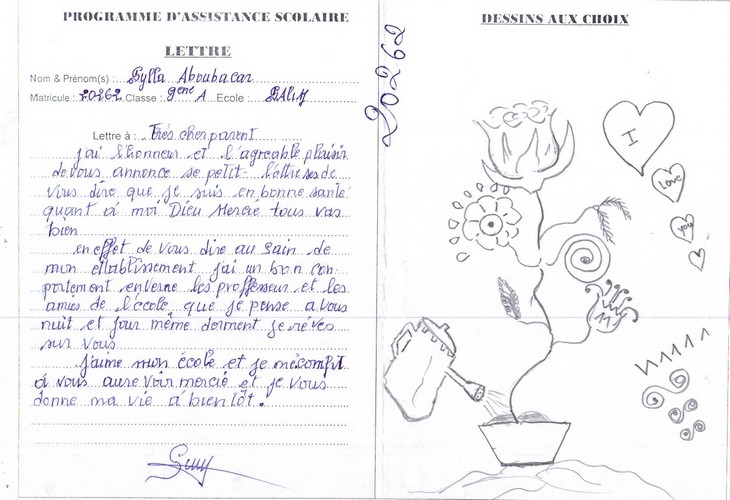 PROGRAMME D'ASSISTANCE SCOLAIRE
LETTRE
Nom & Prénom(s) : Sylla Aboubacar
Matricule : 20262 Classe : 9ème A Ecole : SALIM
Lettre à : Très cher parent
j'ai l'honneur et l'agreable plaisir
de vous annonce se petit lettre de
vous dire que je suis en bonne santé
quant à moi Dieu Mercie tous vas
bien
en effet de vous dire au sain de
mon etablissement j'ai un bon con
portement enverse les proffesseur et les
amies de l'école que je pense a vous
nuit et jour même dorment je rêves
sur vous
j'aime mon école et je
à vous aure voir mercie et je vous
donne ma vie à bientôt.
20262
DESSINS AUX CHOIX
I
Love
you